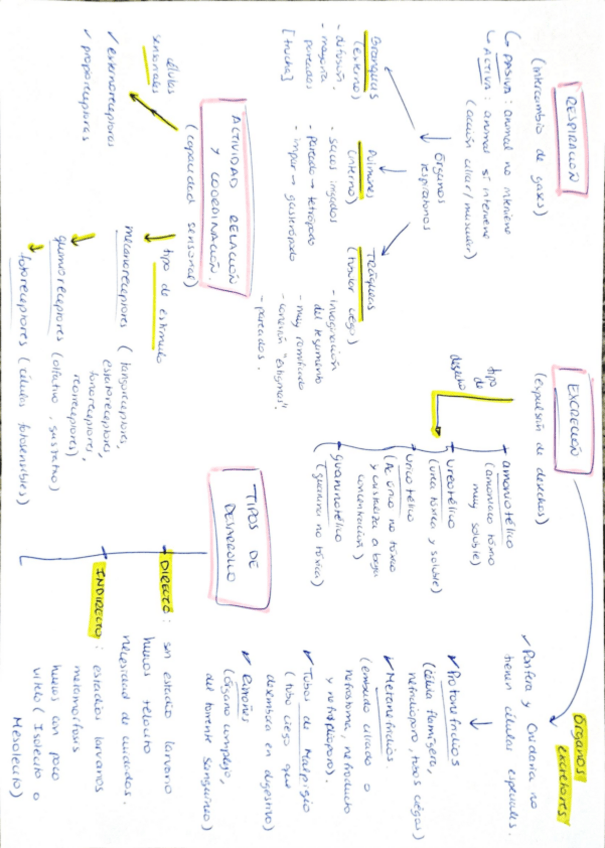 RESPIRACIÓN
(intercambio de gases)
↳ PASIVA: animal no interviene
↳ ACTIVA: animal sí interviene
(acción ciliar/muscular)
órganos
respiratorios
Branquias
(externo)
- difusión
- mayoría
pareadas
[trucha]
Pulmones
(interno)
- sacos irrigados
- pareado → tetrápodo
- impar → gasterópodo
TRáqueas
(tubular ciego)
- invaginación
del tegumento
- muy ramificado
- conexión "estigmas".
- pareadas.
EXCRECIÓN
(expulsión de desechos)
tipo
de
desecho
amoniotélico
(amoniaco tóxico
muy soluble)
ureotélico
(urea tóxica y soluble)
uricotélico
(Ac. úrico no tóxico
y cristaliza a baja
concentración)
guaninotélico
(guanina no tóxica)
órganos
excretores
✓ Porífera y Cnidaria no
tienen células especiales.
✓ Protonefridios
(célula flamígera,
nefridioporo, tubos ciegos)
✓ Metanefridios
(embudo ciliado o
nefrostoma, nefroducto
y nefridioporo).
✓ Tubos de Malpigio
(tubo ciego que
desemboca en digestivo)
✓ Riñones
(órgano complejo,
del torrente sanguíneo)
ACTIVIDAD RELACIÓN
Y COORDINACIÓN.
(capacidad sensorial)
células
sensoriales
✓ exterorreceptoras
✓ propioreceptoras
tipo de estímulo
mecanoreceptores (tangoreceptores,
estatoreceptores,
fonoreceptores,
reorreceptores)
quimiorreceptores (olfativo, gustativo)
fotorreceptores (células fotosensibles)
TIPOS DE
DESARROLLO
DIRECTO: sin estadio larvario
huevos telolecito
necesidad de cuidados.
INDIRECTO: estadios larvarios
metamorfosis
huevos con poco
vitelo (Isolecito o
Mesolecito)